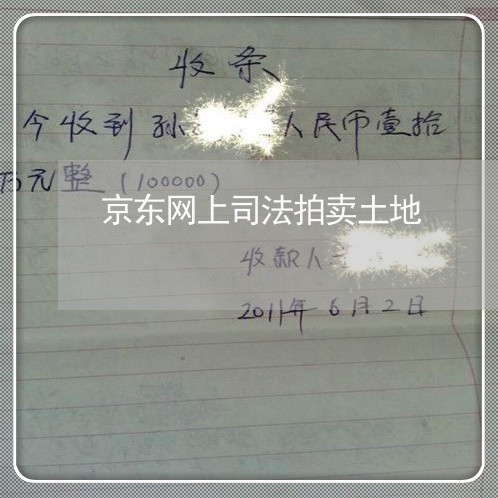 收条
今收到孙 人民币壹拾
万元整（100000）
京东网上司法拍卖土地
收款人
2011年6月2日